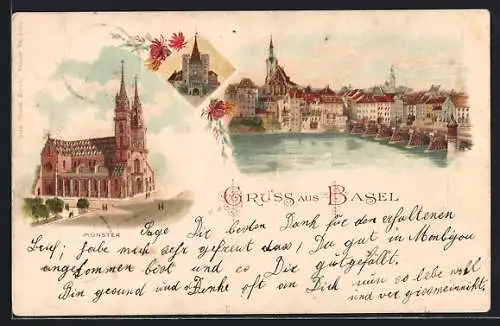 GRUSS AUS BASEL
MÜNSTER
Sage Dir besten Dank für den erhaltenen
Brief; habe mich sehr gefreut dass Du gut in Monbijou
angekommen bist und es Dir gutgefällt.
Bin gesund und Denke oft an Dich nun so lebe wohl
und vergissmeinnicht.